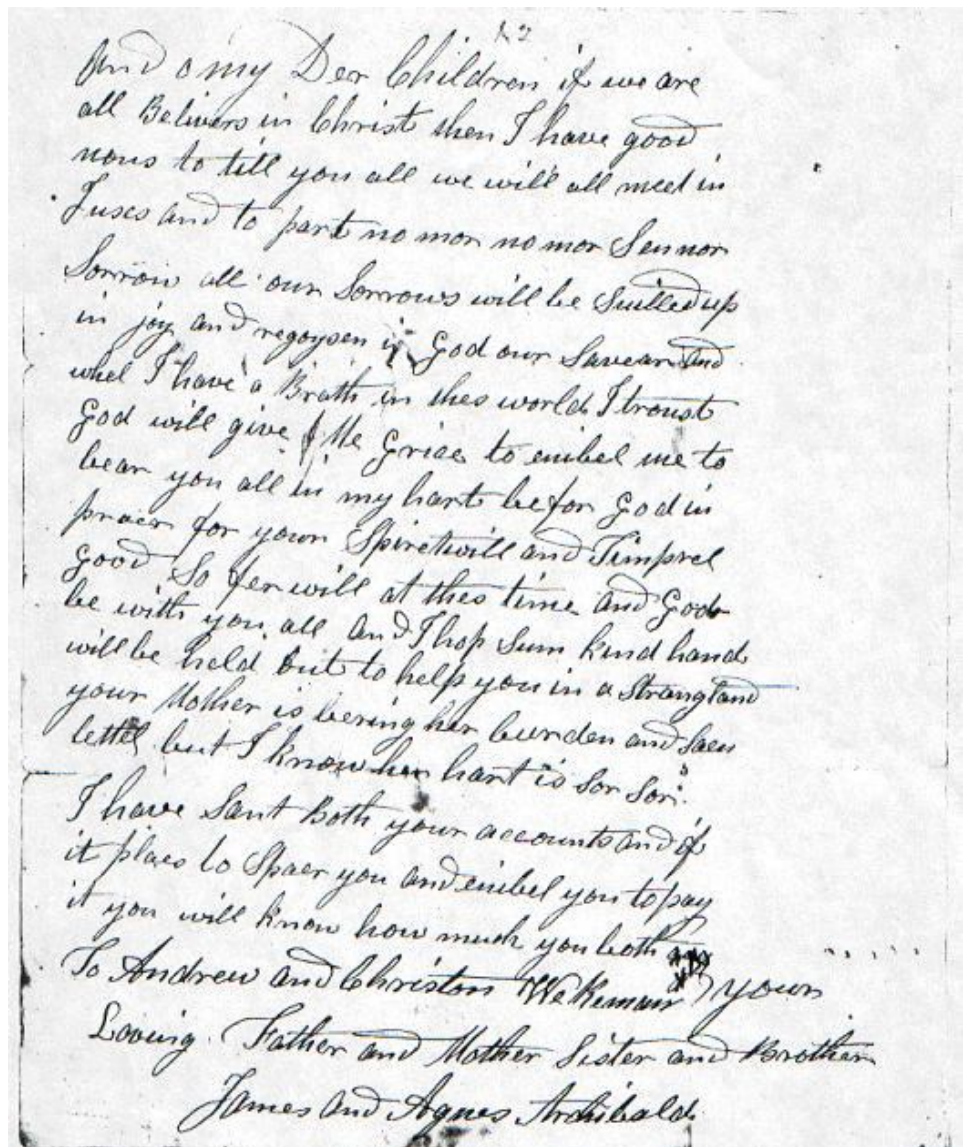 12
And o my Der Children if we are
all Belivers in Christ then I have good
nous to till you all we will all meed in
Juses and to part no mor no mor Sen nor
Sorrow all our Sorrows will be Suilled up
in joy and regoysen in God our Savear and
whel I have a Brath in thes world I troust
God will give Me Griace to enibel me to
bear you all in my hart befor God in
praer for your Spiretwill and Timprel
Good So fer will at thes time and God
be with you all And I hop Sum kind hand
will be held out to help you in a Strang land
your Mother is bering her burden and Saes
lettel but I know her hart is Sor Sor.
I have Sant Both your accounts and if
it plaes to Spaer you and enibel you to pay
it you will know how much you both
To Andrew and Christon We Remain yours
Loving Father and Mother Sister and Brother
James and Agnes Archibald